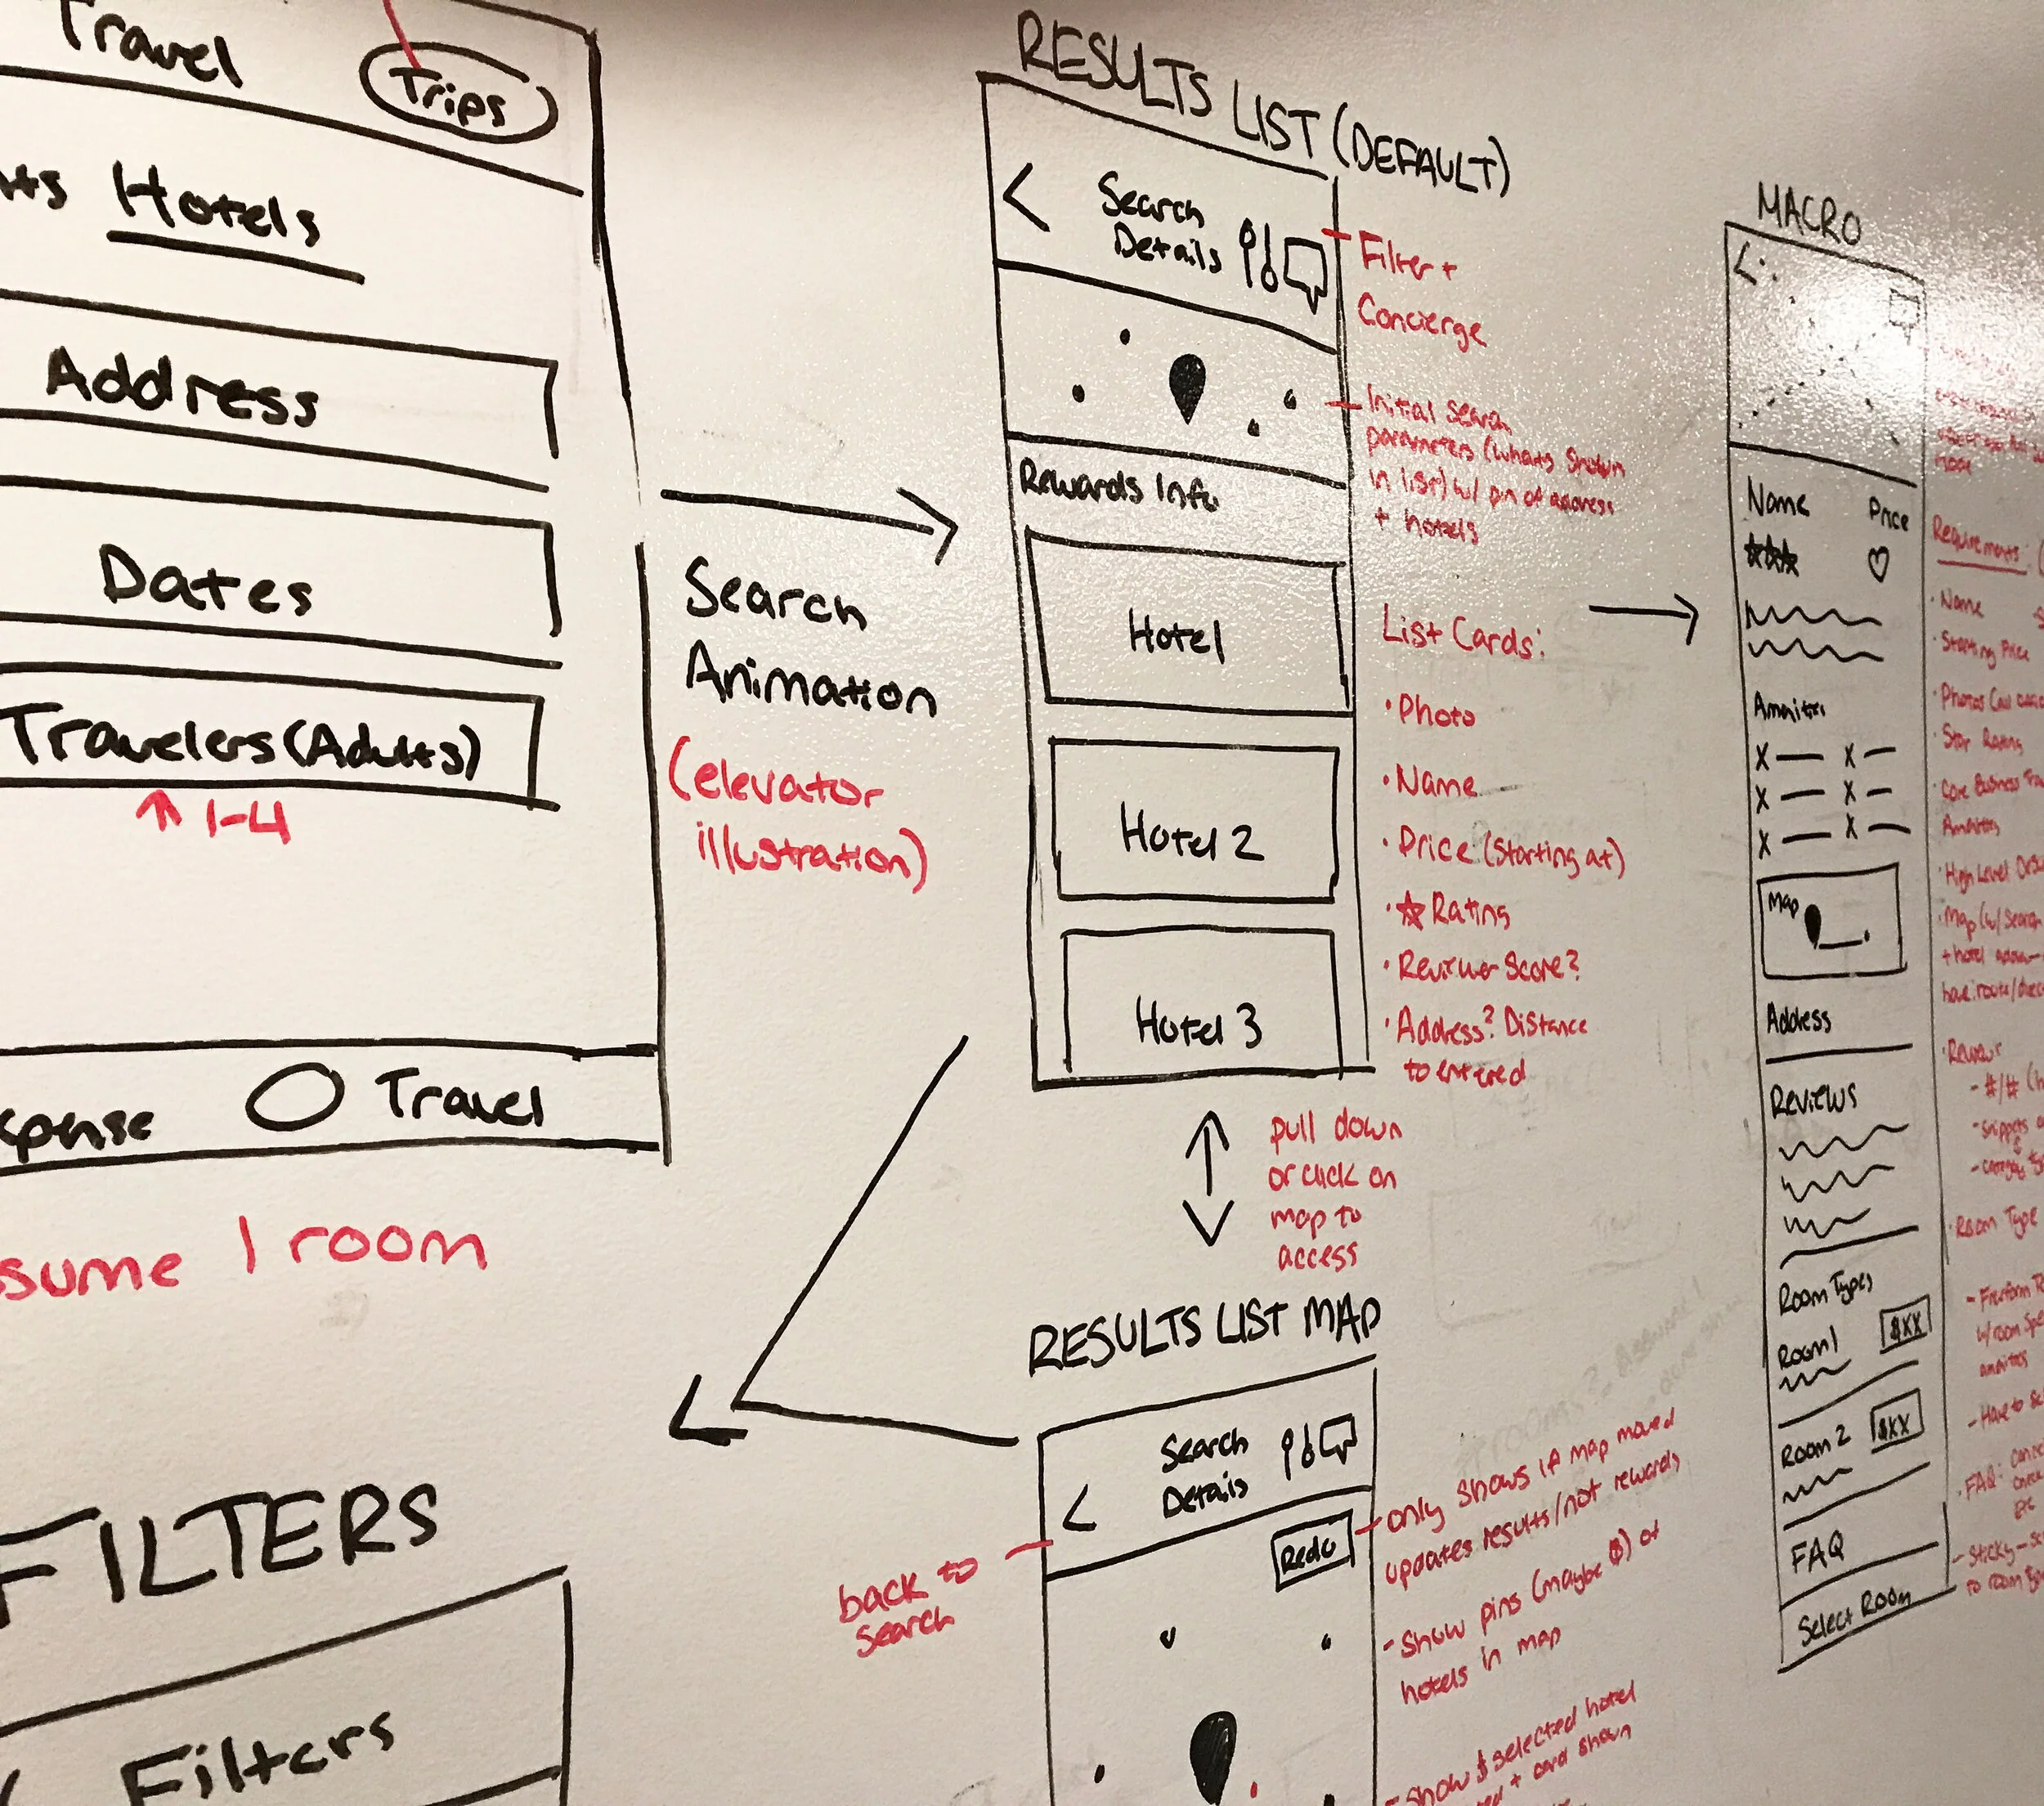 Travel
Trips
Hotels
Address
Dates
Travelers (Adults)
↑ 1-4
Travel
1 room
FILTERS
Filters
Search
Animation
(elevator
illustration)
RESULTS LIST (DEFAULT)
<
Search
Details
Filter +
Concierge
Initial search
parameters (whats shown
in list) w/ pin of address
+ hotels
Rewards Info
Hotel
Hotel 2
Hotel 3
List Cards:
• Photo
• Name
• Price (starting at)
• ☆ Rating
• Reviewer Score?
• Address? Distance
to entered
pull down
or click on
map to
access
RESULTS LIST MAP
<
Search
Details
Redo
back to
search
- only shows if map moved
updates results/not rewards
- Show pins (maybe $) of
hotels in map
- Show $ selected hotel
+ card shown
MACRO
<
Name Price
☆☆☆ ♡
X — X —
X — X —
X — X —
Map
Address
Reviews
Room Types
Room 1 $XX
Room 2 $XX
FAQ
Select Room
Requirements:
• Name
• Starting Price
• Photos
• Star Rating
• Core Business
Amenities
• High Level
• Map (w/ Search
+ hotel
have route/
- #/#
- Snippets
• Room Type
w/ room
- Have to
• FAQ:
- Sticky -
to room